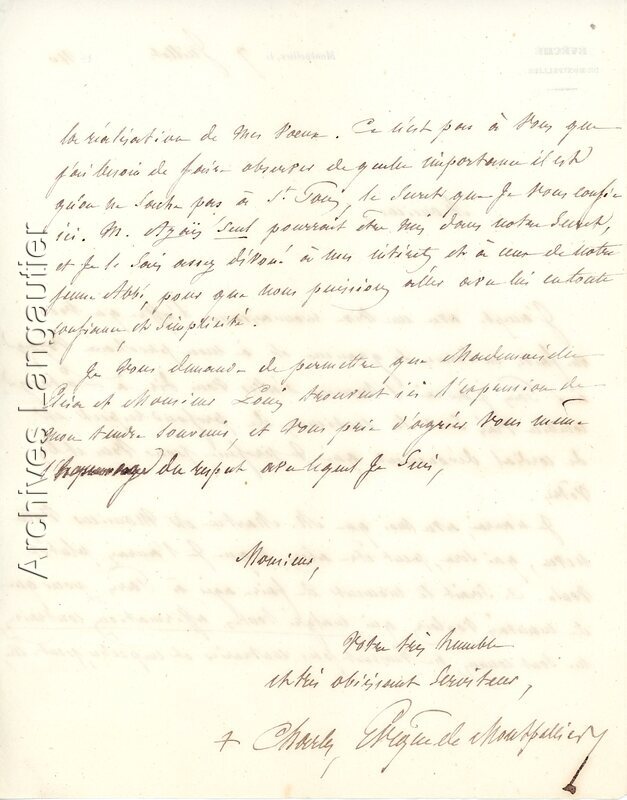 la réalisation de mes vœux. Ce n'est pas à vous que
j'ai besoin de faire observer de quelle importance il est
qu'on ne sache pas à St Pons, le secret que je vous confie
ici. M. Azaïs seul pourrait être mis dans notre secret,
et je le sais assez dévoué à mes intérêts et à ceux de notre
jeune Abbé, pour que nous puissions aller avec lui en toute
confiance et simplicité.
Je vous demande de permettre que Mademoiselle
et Monsieur Louis trouvent ici l'expression de
mon tendre souvenir, et vous prie d'agréer vous même
l'hommage du respect avec lequel je suis,
Monsieur,
Votre très humble
et très obéissant serviteur,
+ Charles, Evêque de Montpellier
Archives Langautier
Montpellier, le 7 Juillet
ÉVÊCHÉ
DE MONTPELLIER